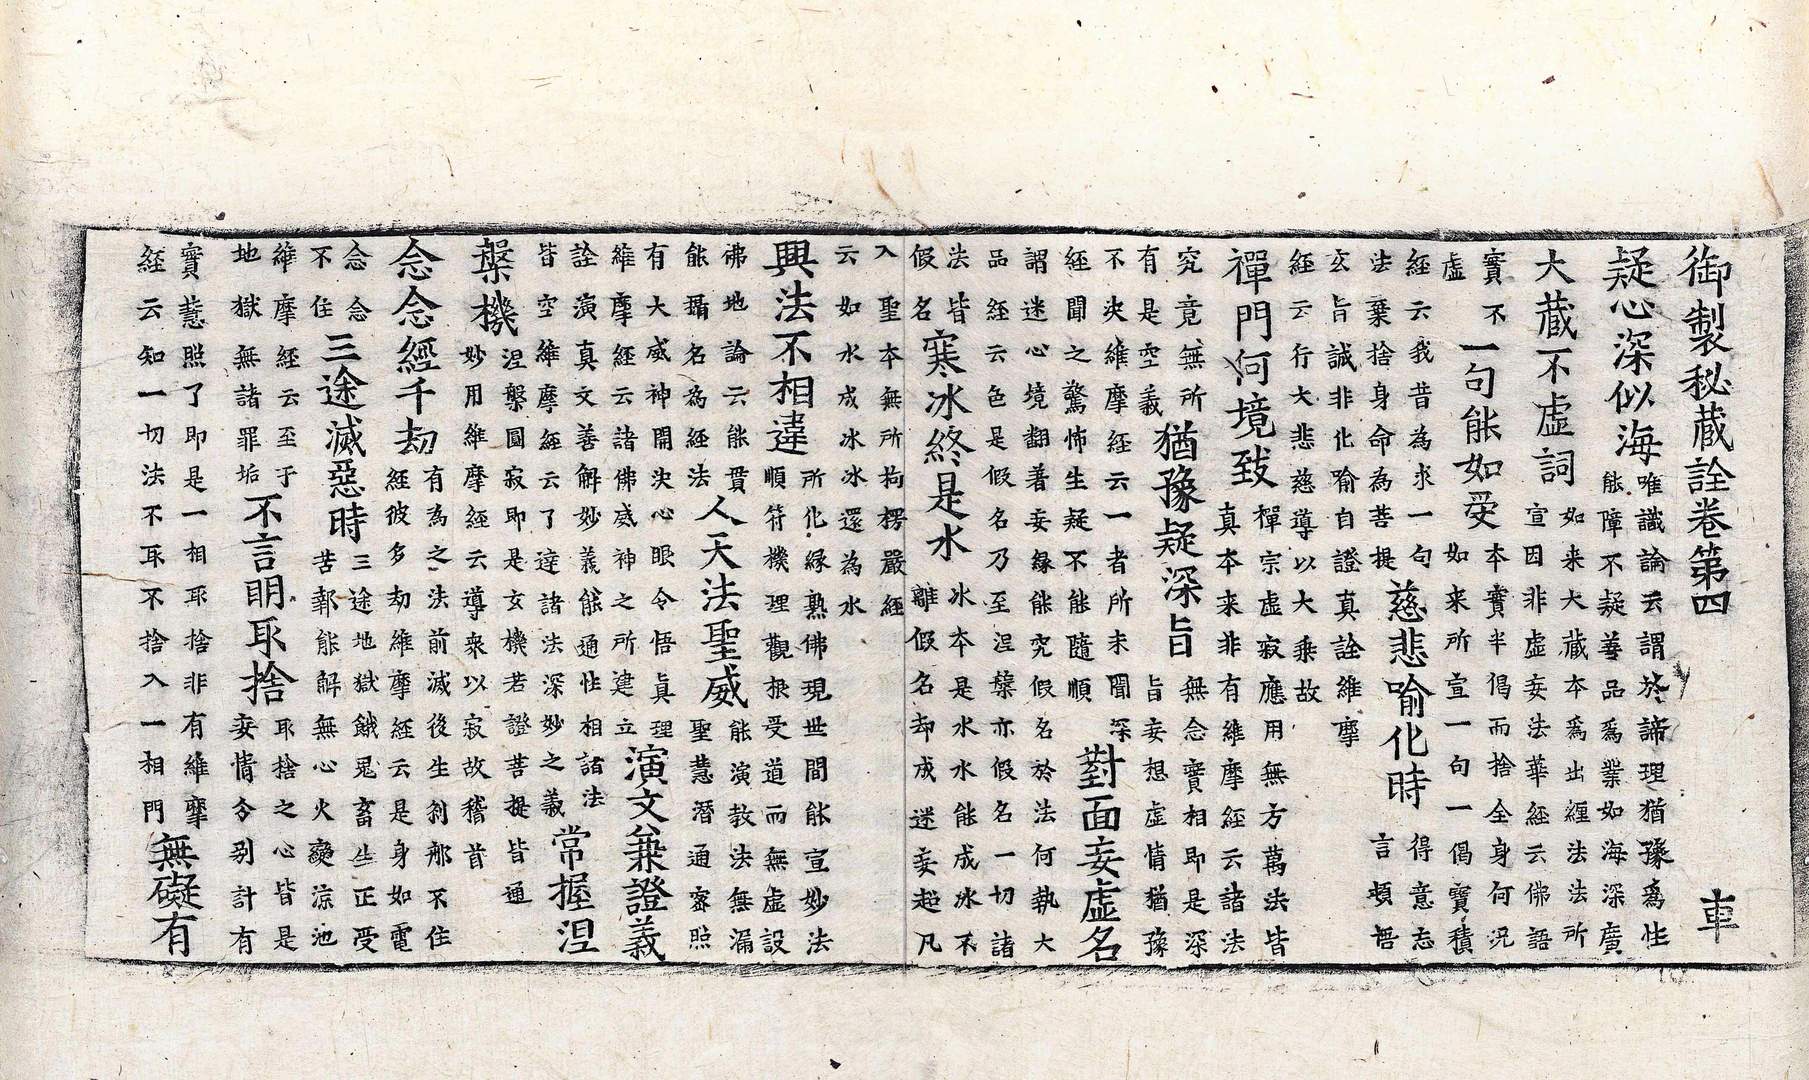 御製秘藏詮卷第四 車
疑心深似海
唯識論云謂於諦理猶豫爲性
能障不疑善品爲業如海深廣
大藏不虛詞
如来大藏本爲出纏法法所
宣因非虛妄法華經云佛語
實不
虛
一句能如受
本實半偈而捨全身何況
如来所宣一句一偈寶積
經云我昔為求一句
法棄捨身命為菩提
慈悲喻化時
得意忘
言頓悟
玄旨誠非化喻自證真詮維摩
經云行大悲慈導以大乘故
禪門何境致
禪宗虛寂應用無方萬法皆
真本来非有維摩經云諸法
究竟無所
有是空義
猶豫疑深旨
無念實相即是深
旨妄想虛情猶豫
不決維摩經云一者所未聞深
經聞之驚怖生疑不能隨順
對面妄虛名
謂迷心境翻著妄緣能究假名於法何執大
品經云色是假名乃至涅槃亦假名一切諸
法皆
假名
寒冰終是水
冰本是水水能成冰不
離假名却成迷妄超凡
入聖本無所拘楞嚴經
云如水成冰冰還為水
興法不相違
所化緣熟佛現世間能宣妙法
順符機理觀根受道而無虛設
佛地論云能貫
能攝名為經法
人天法聖威
能演教法無漏
聖慧潛通密照
有大威神開決心眼令悟真理
維摩經云諸佛威神之所建立
演文兼證義
詮演真文善解妙義能通性相諸法
皆空維摩經云了達諸法深妙之義
常握涅
槃機
涅槃圓寂即是玄機若證菩提皆通
妙用維摩經云導衆以寂故稽首
念念經千劫
有為之法前滅後生剎那不住
經彼多劫維摩經云是身如電
念念
不住
三途滅惡時
三途地獄餓鬼畜生正受
苦報能解無心火變涼池
維摩經云至于
地獄無諸罪垢
不言明取捨
取捨之心皆是
妄情令别計有
實慧照了即是一相取捨非有維摩
經云知一切法不取不捨入一相門
無礙有